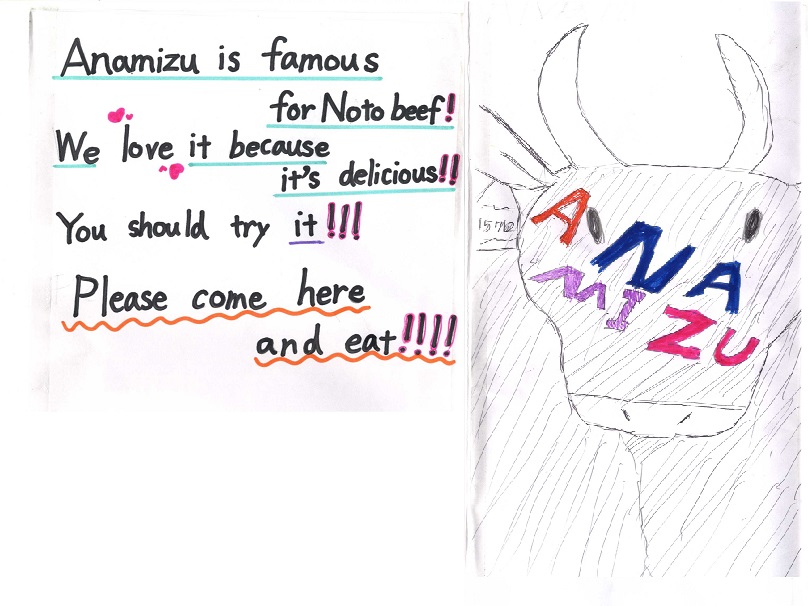 Anamizu is famous
for Noto beef!
We love it because
it's delicious!!
You should try it!!!
Please come here
and eat!!!!
ANA
MIZU